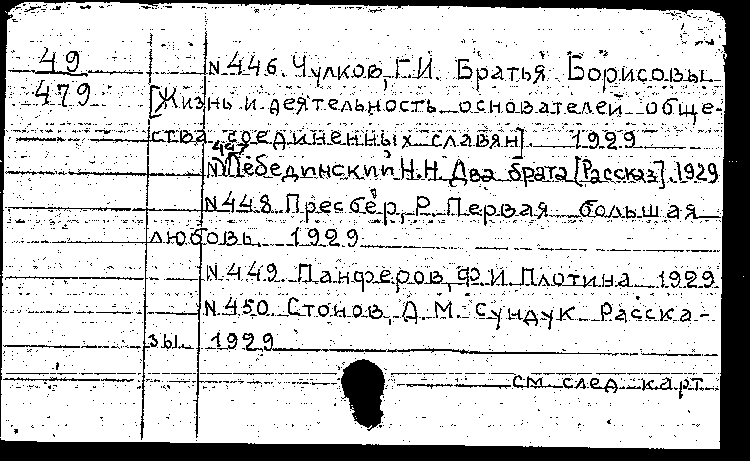 49
479
N 446. Чулков, Г.И. Братья Борисовы
[Жизнь и деятельность основателей обще-
ства соединенных славян]. 1929
N 447 Лебединский Н.Н. Два брата [Рассказ]. 1929
N 448 Пресбер, Р. Первая большая
любовь. 1929
N 449. Панферов, Ф.И. Плотина 1929
N 450. Стонов, Д.М. Сундук. Расска-
зы. 1929
см. след. карт.